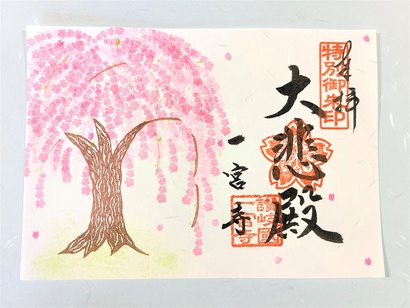 奉拝
特別御朱印
大悲殿
讃岐國一宮寺
一宮寺